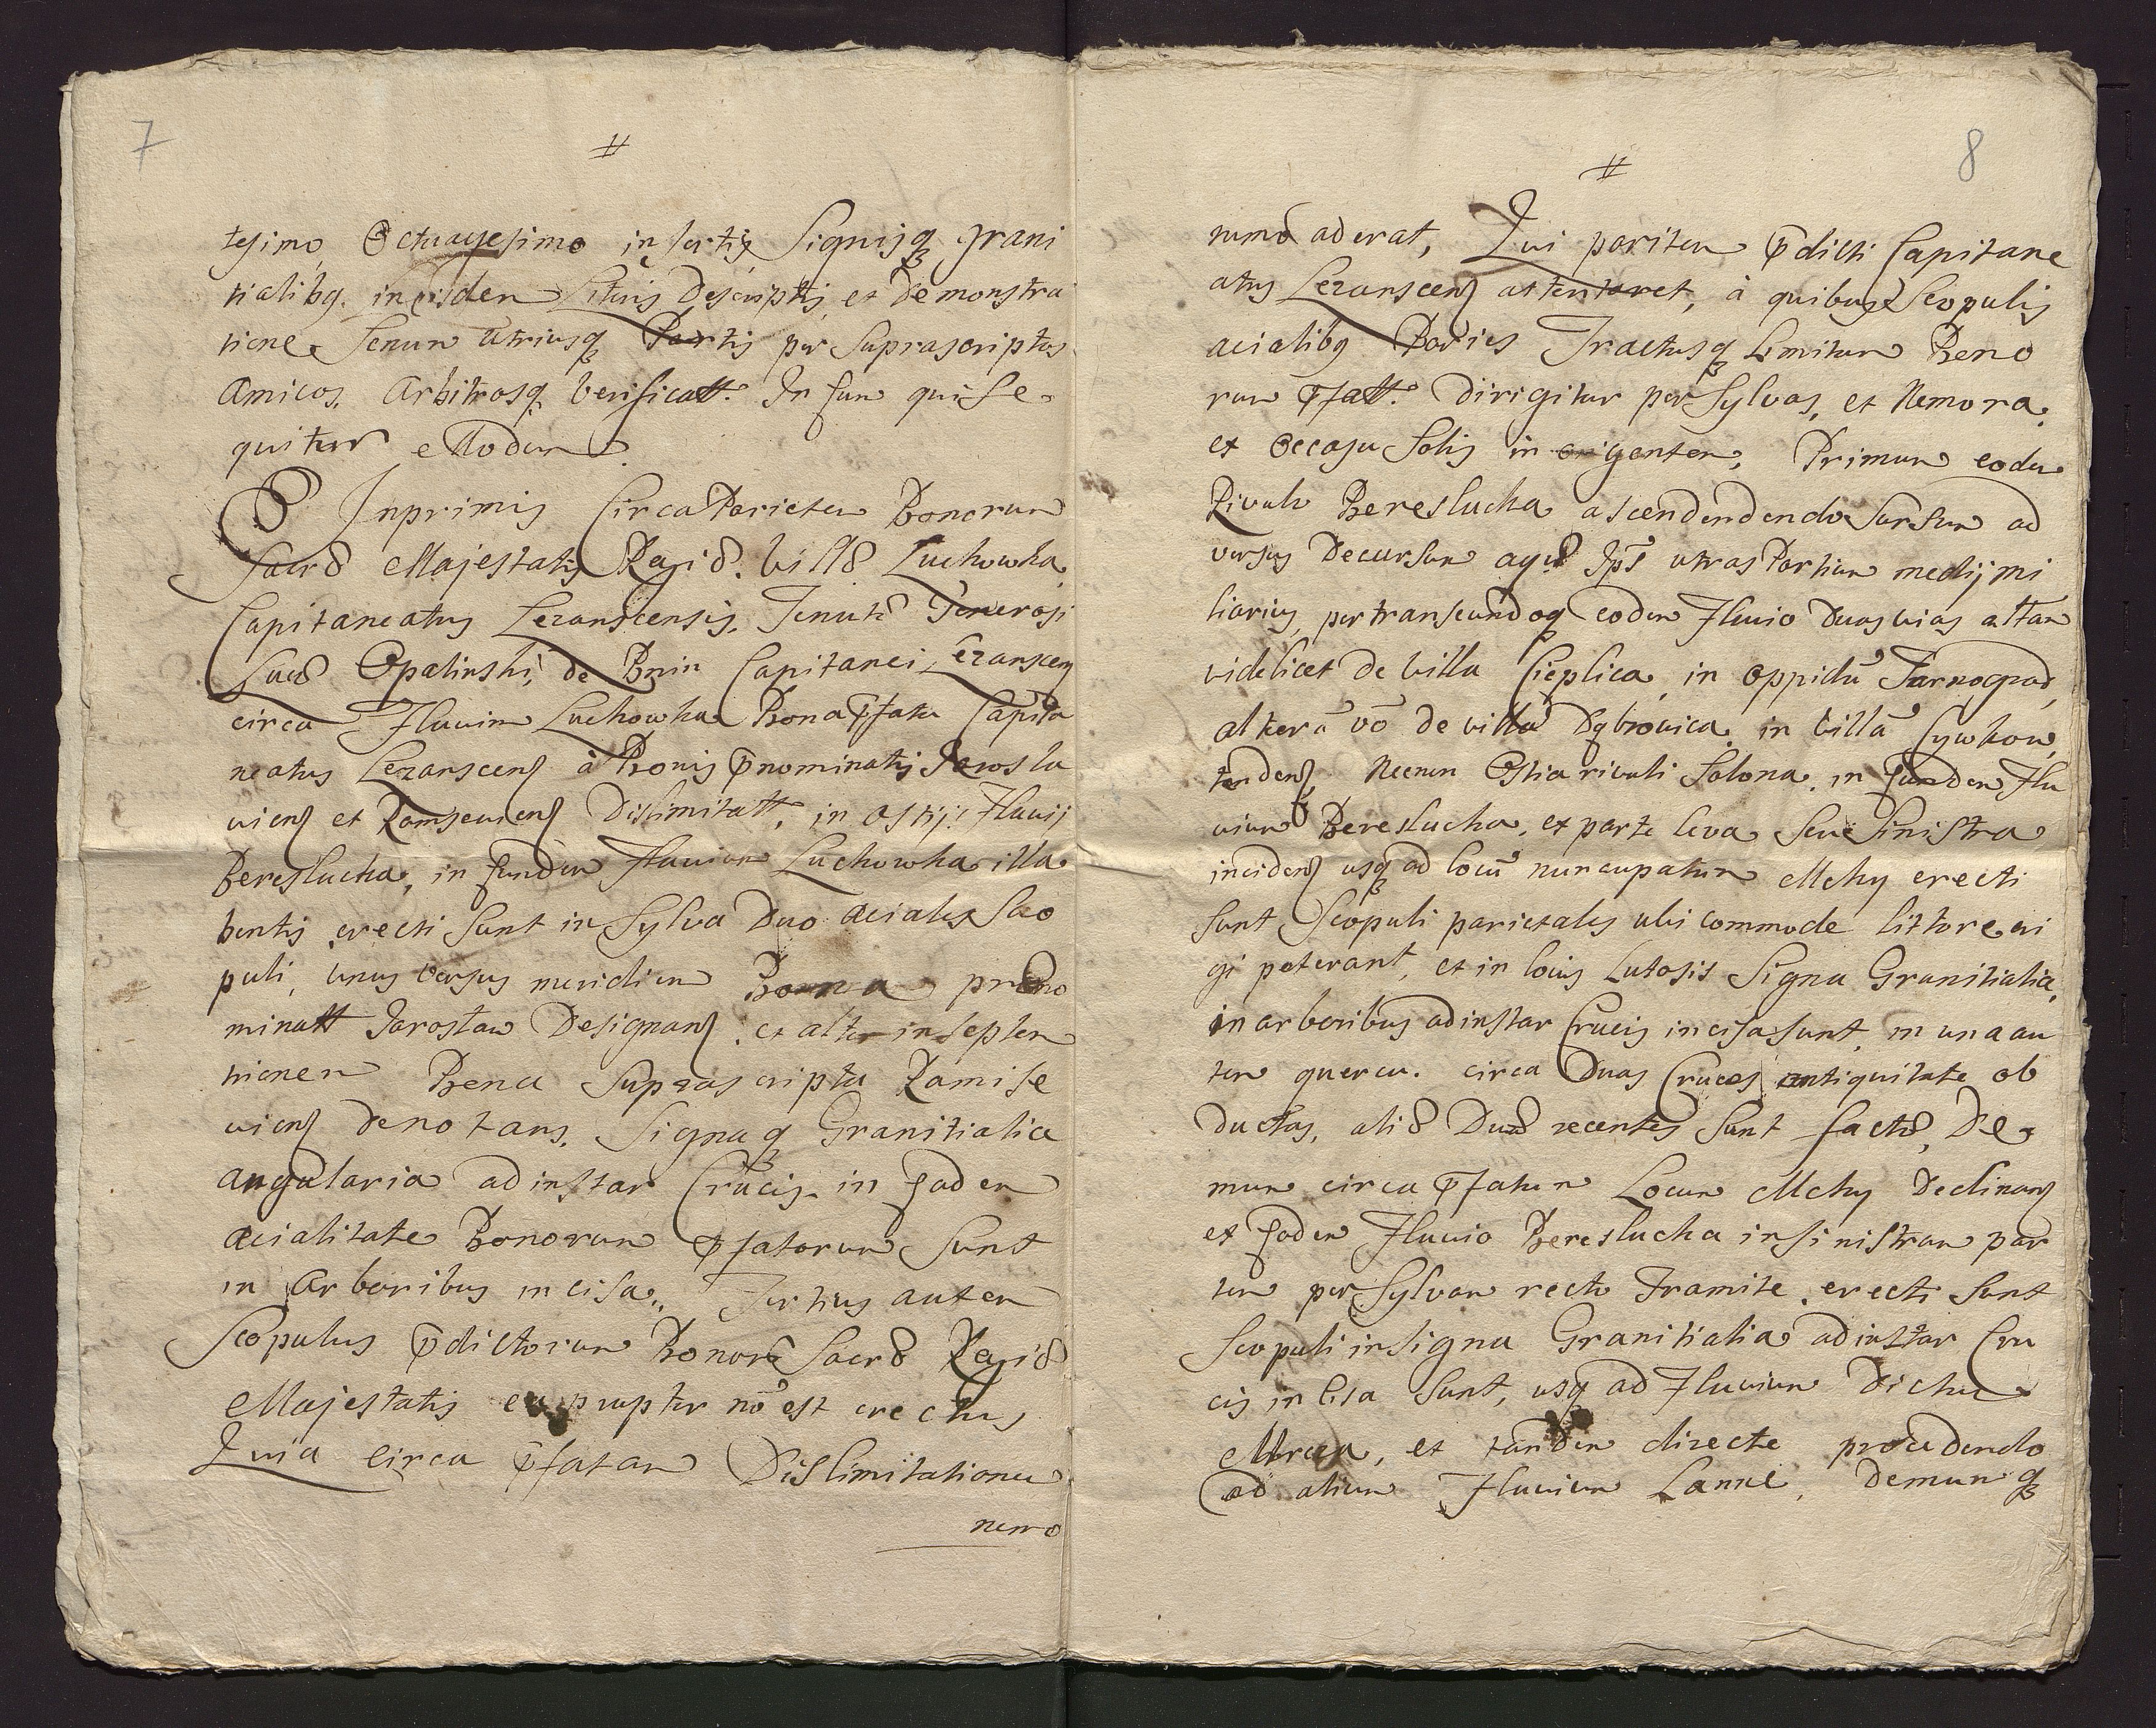 7
#
tesimo Octuagesimo insertis Signijsq grani
tialibq. in eisdem Litteris Descriptis, et Demonstra
tione Senum utriusq Partis per Suprascriptos
Amicos, Arbitrosq verificatt. In hunc qui se-
quitur Modum
Inprimis Circa Parietem Bonorum
Sacrae Majestatis Regiae. villae Luchowka
Capitaneatus Lezanscensis, Tenutae Generosi
Lucae Opalinski, de Bnin Capitanei Lezanscen
circa Fluvium Luchowka Bona pfata Capita
neatus Lezanscens à Bonis pnominatis Jarosla
viens et Ramseviens Dislimitatt, in ostij Fluvij
Bereslucha, in eundem Fluvium Luchowka illa
bentis erecti sunt in Sylva Duo Aciales Sco
puli, unus versus meridiem Bona praeno
minatt Jaroslaw Designans. et alter in septem
trionem Bona Suprascripta Ramise
viens denotans. Signaq Granitialia
angularia ad instar Crucis in eadem
Acialitate Bonorum pfatorum sunt
in Arboribus incisa.. Tertius autem
Scopulus pdictorum Bonorū Sacrae Regiae
Majestatis ea propter nō est erectus
Quia circa pfatam Dislimitationem
nemo
8
#
nemo aderat, Qui pariter pdicti Capitane
atus Lezanscens attentaret, à quibus Scopulis
acialibq Paries Tractusq Limitum Bono
rum pfatt. dirigitur per Sylvas, et Nemora,
ex Occasu Solis in origentem, Primum eodem
Rivulo Bereslucha ascendendendo sursum ad
versus Decursum aquae Ips utras Partium medij mi
liaris, pertranseundoq eodem Fluvio Duas vias alteram
videlicet de villa Cieplica, in oppidū Tarnogrod,
alterā vō de villa Dąbrowica in villā Cywkow,
tendens, Necnon Ostia rivuli Solona in eundem Flu
vium Bereslucha, ex parte leva seu sinistra
incidens usq ad locū nuncupatum Mchy erecti
sunt Scopuli parietales ubi commode littore eri
gi poterant, et in locis Lutosis Signa Granitialia,
in arboribus ad instar Crucis incisa sunt, in una au
tem quercu. circa Duas Cruces antiquitate ob
ductas, aliae Duae recentes sunt factae, De-
mum circa pfatum Locum Mchy Declinans
ex eodem Fluvio Bereslucha in sinistram par
tem per Sylvam recto Tramite, erecti sunt
Scopuli insigna Granitialia ad instar Cru
cis incisa sunt, usq ad Fluvium Dictum
et tandem directe procedendo
ad alium Fluvium Lanne, Demumq